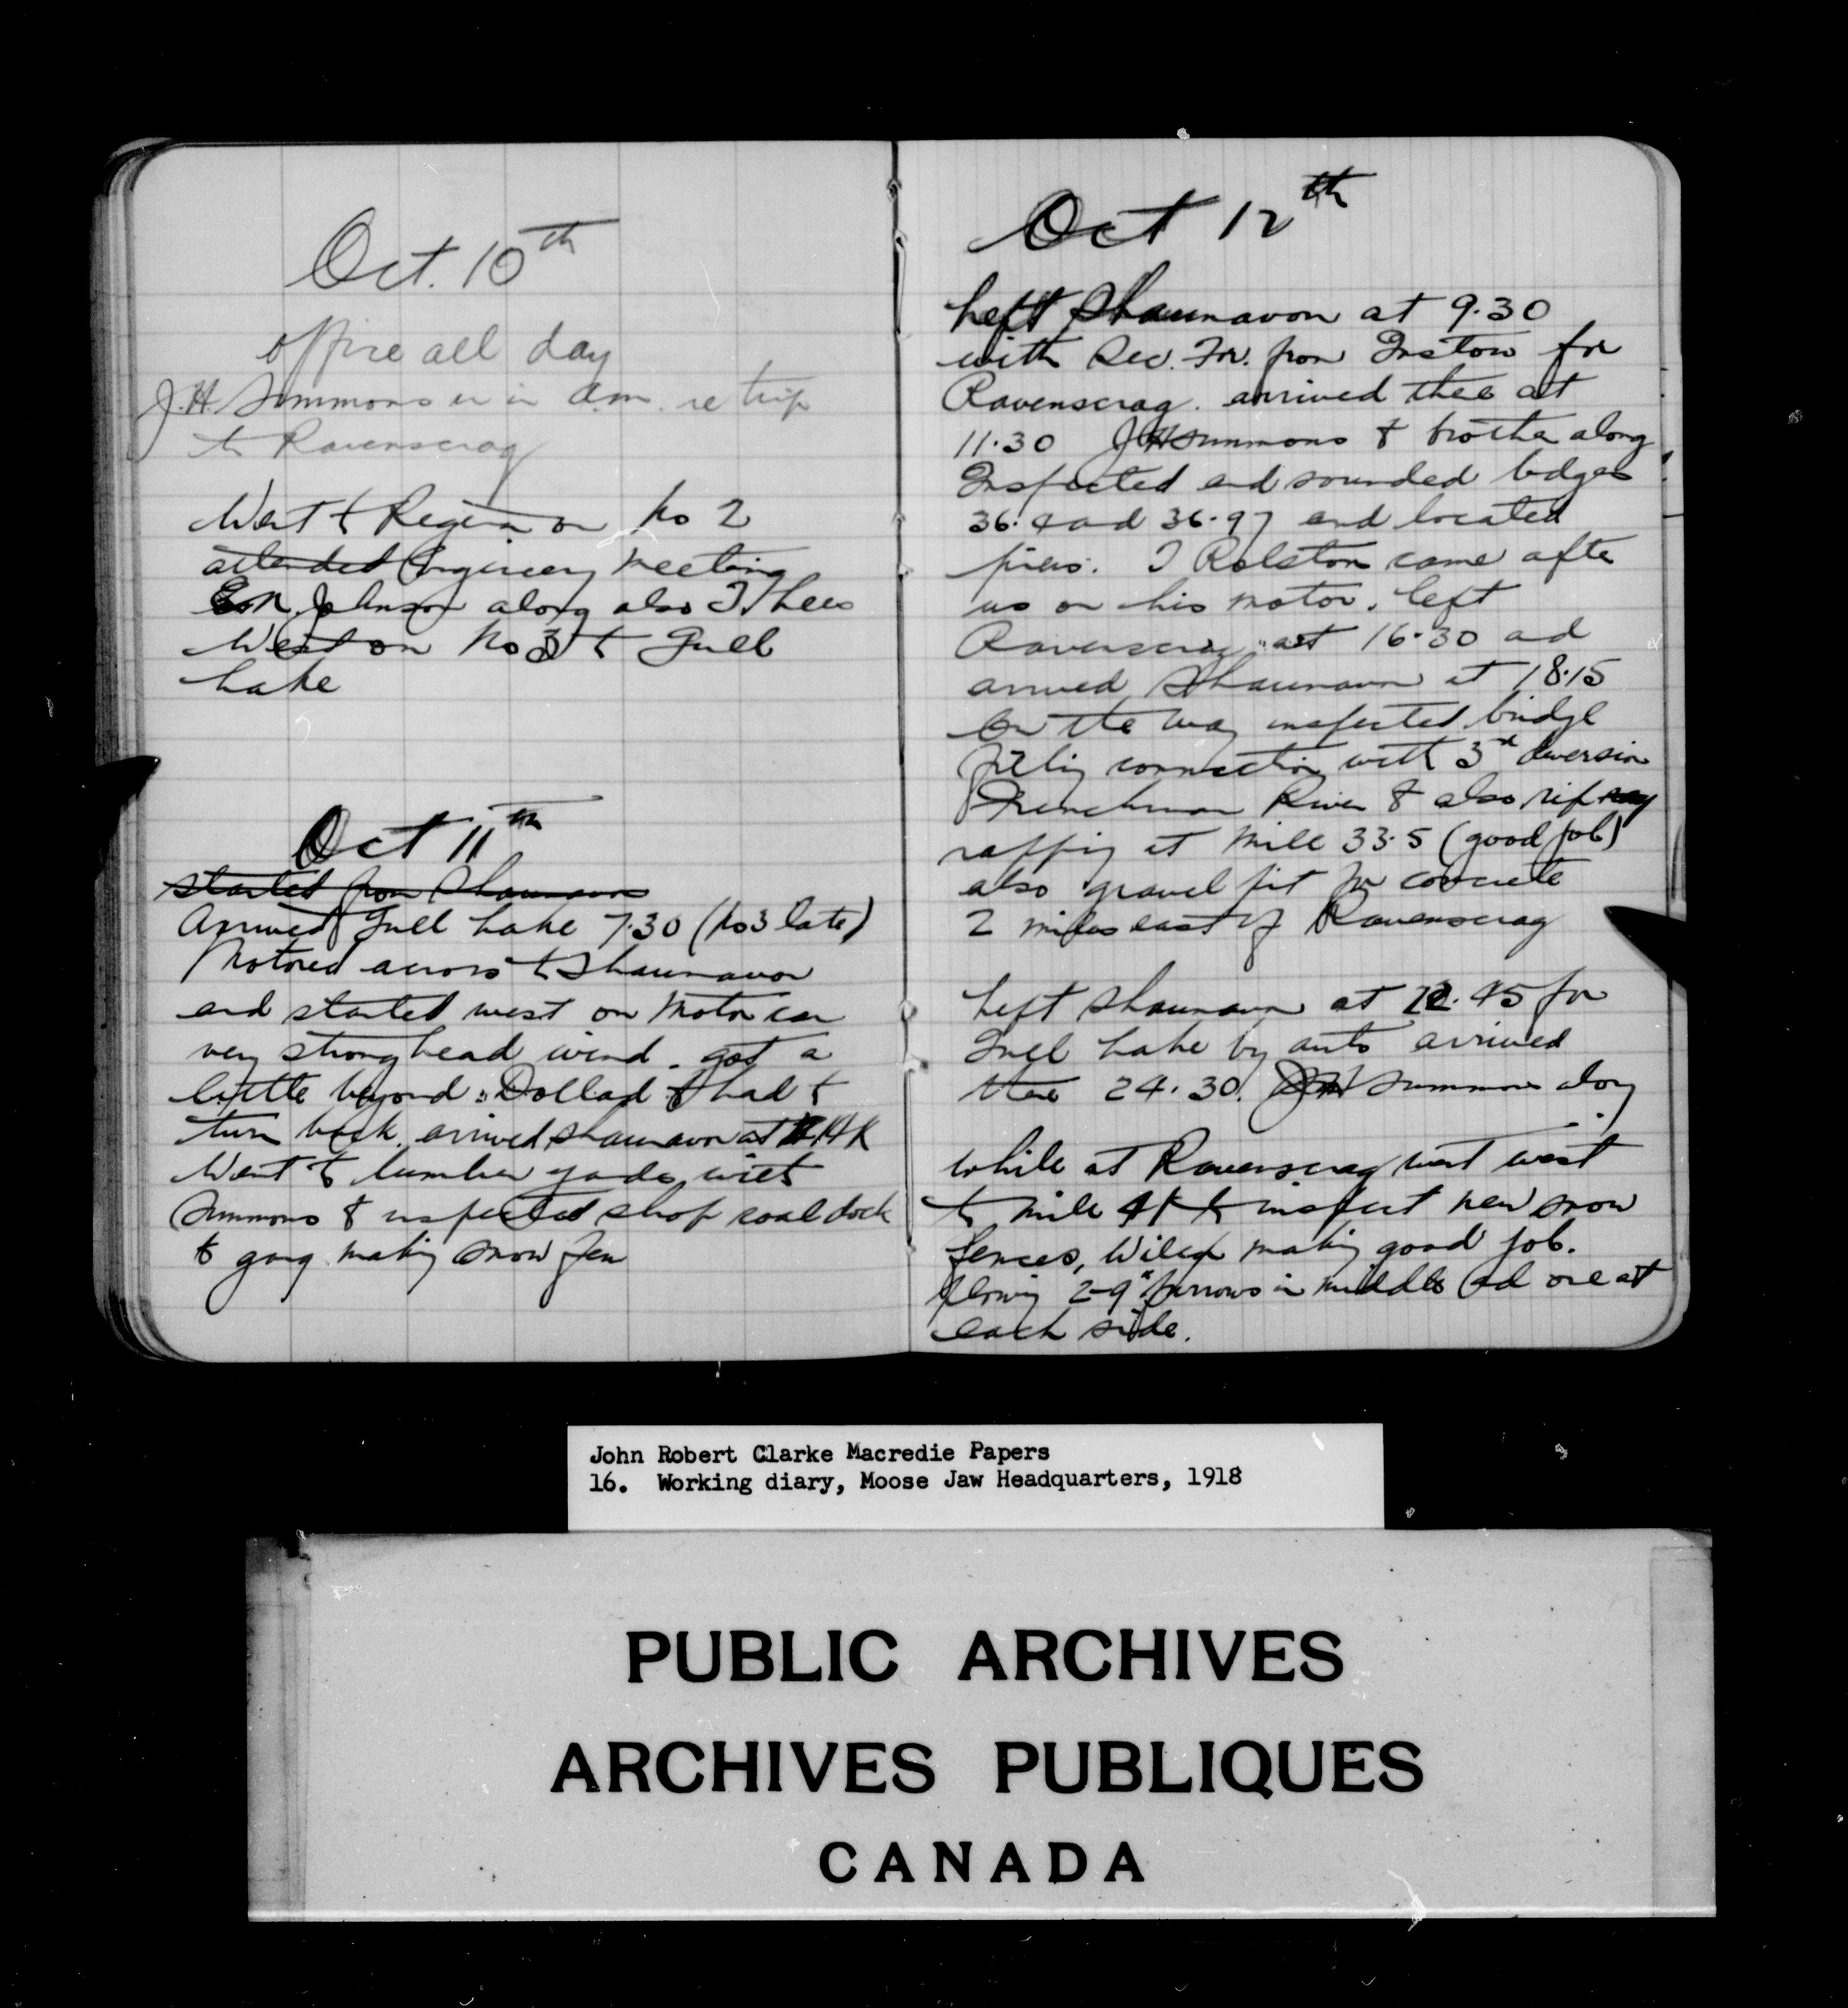 Oct. 10th
office all day
J.H. Simmons in a.m. re trip
to Ravenscrag
Went to Regina on No 2
attended Engineery meeting
Johnson along also T. Lees
West on No 3 to Gull
Lake
Oct 11th
started from Shaunavon
Arrived Gull Lake 7.30 (No 3 late)
Motored across to Shaunavon
and started west on Motor car
very strong head wind. got a
little beyond Dollard & had to
turn back. arrived Shaunavon at 14K
Went to lumber yards with
Simmons & inspected shop coal dock
& gang making snow fen
Oct 12th
Left Shaunavon at 9.30
with Sec. Fr. from Instow for
Ravenscrag. arrived thee at
11.30 J H Simmons & brother along
Inspected and sounded bdges
36.4 and 36.97 and located
piers. T Rolston came after
us on his motor. Left
Ravenscrag at 16.30 and
arrived Shaunavon at 18.15
On the way inspected bridge
filling connection with 3rd diversion
Frenchman River & also rip
rapping at Mile 33.5 (good job)
also gravel pit for concrete
2 miles east of Ravenscrag
Left Shaunavon at 22.45 for
Gull Lake by auto arrived
there 24.30. JH Simmons along
While at Ravenscrag went west
to mile 41 to inspect new snow
fences, making good job.
Plowing 2-9" furrows in middle and one at
each side.
John Robert Clarke Macredie Papers
16. Working diary, Moose Jaw Headquarters, 1918
PUBLIC ARCHIVES
ARCHIVES PUBLIQUES
CANADA